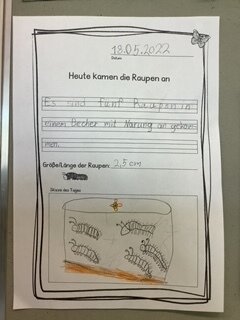 18.05.2022
Datum
Heute kamen die Raupen an
Es sind fünf Raupen in
einem Becher mit Narung an gekom-
men.
Größe/Länge der Raupen: 2,5 cm
Skizze des Tages